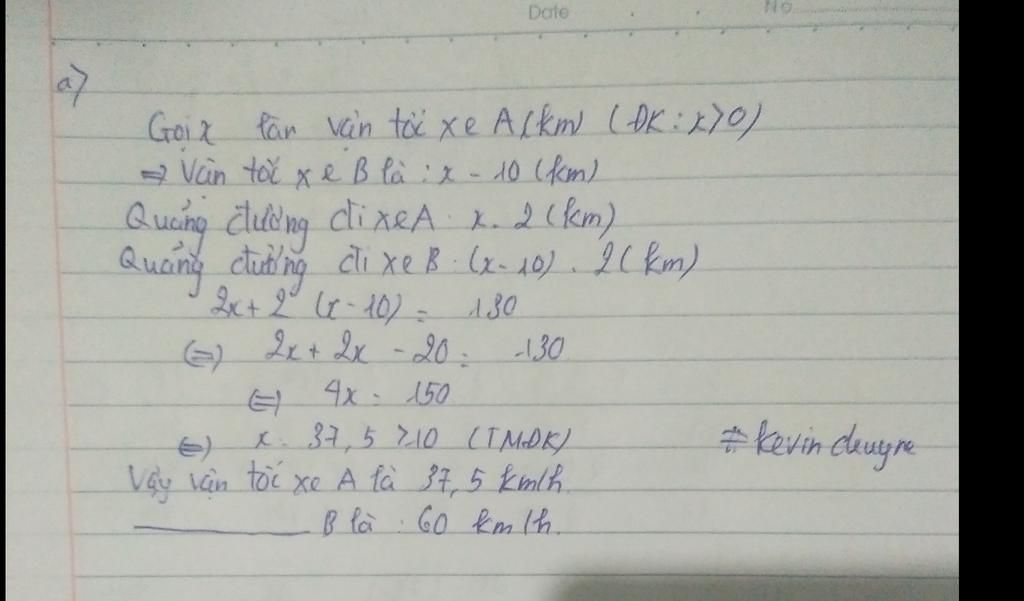 Date No
a)
Gọi x lần vận tốc xe A (km) (ĐK: x>0)
=> Vận tốc xe B là : x - 10 (km)
Quảng đường đi xe A. x. 2 (km)
Quảng đường đi xe B. (x-10). 2 (km)
2x + 2 (x-10) = 130
(=) 2x + 2x - 20 = 130
(=) 4x = 150
(=) x = 37,5 >10 (TMĐK) #kevin
Vậy vận tốc xe A là 37,5 km/h
B là : 60 km/h.